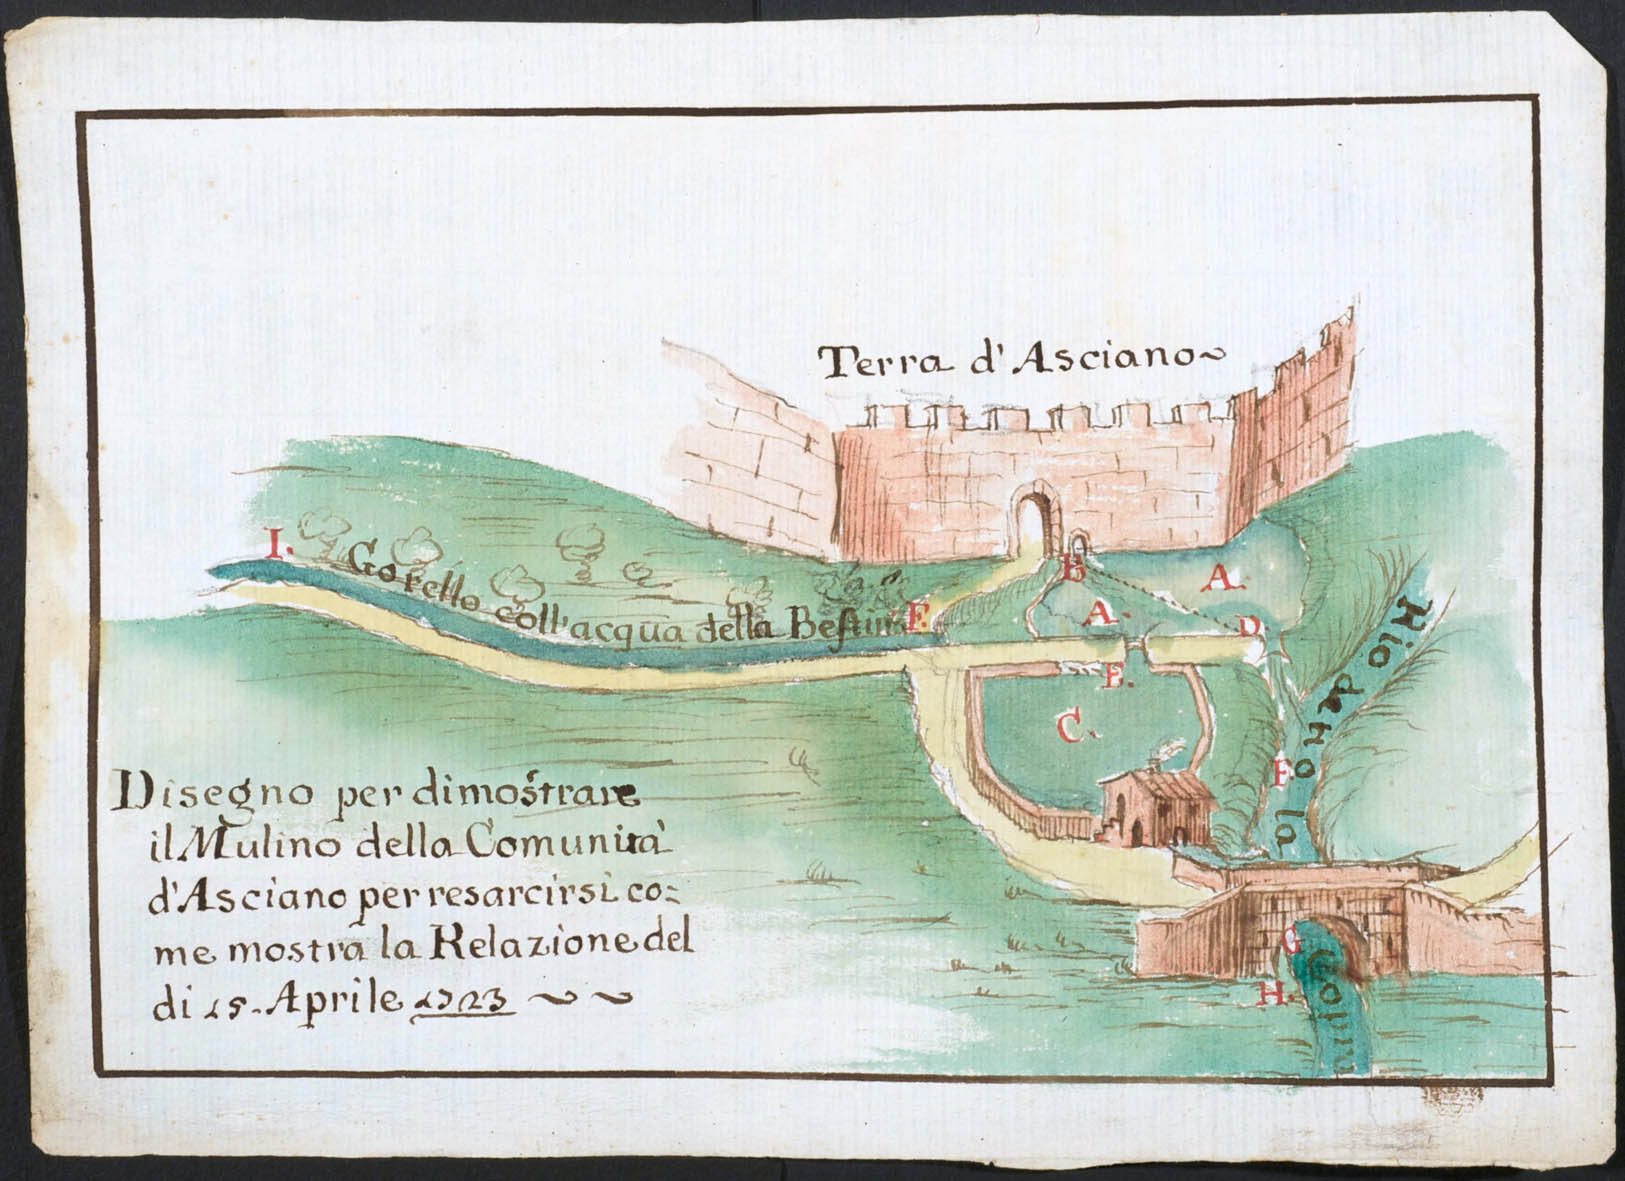 Terra d'Asciano
I.
Gorello coll'acqua della Bestin
F.
B
A.
A.
D
E.
C.
F
Rio detto la
G
H.
Copra
Disegno per dimostrare
il Mulino della Comunità
d'Asciano per resarcirsi co=
me mostra la Relazione del
di 15. Aprile 1723